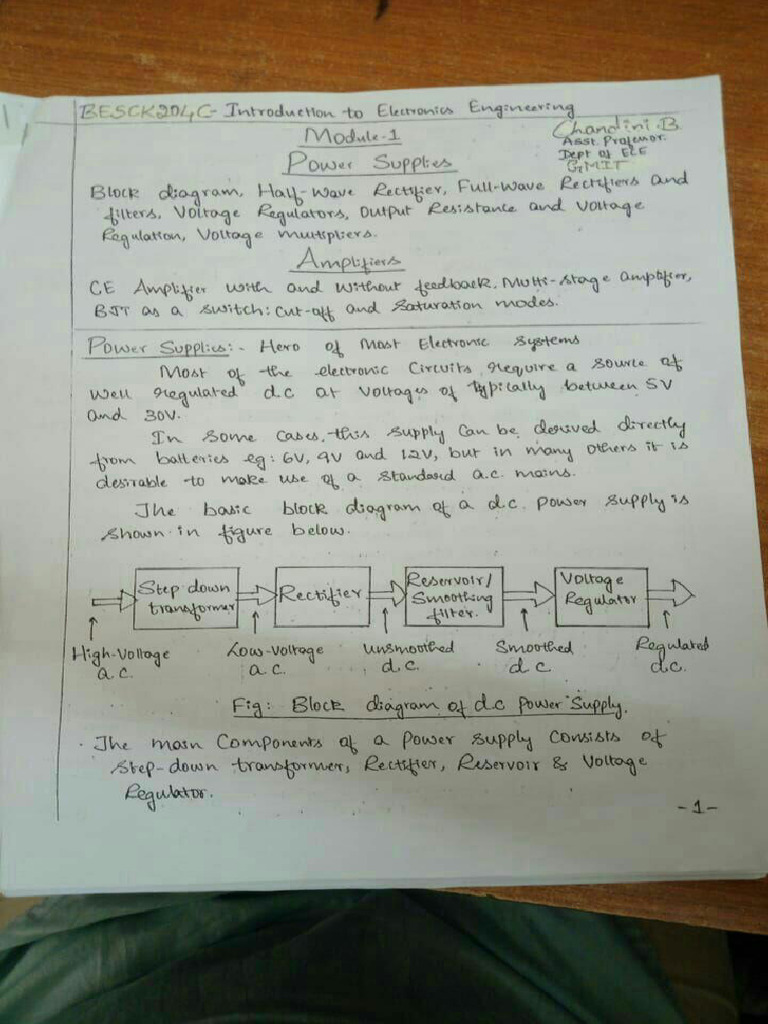 BESCK204C- Introduction to Electronics Engineering
Module-1
Chandini.B
Asst. Professor
Dept of ECE
GMIT
Power Supplies
Block diagram, Half-Wave Rectifier, Full-Wave Rectifiers and
filters, Voltage Regulators, Output Resistance and Voltage
Regulation, Voltage multipliers.
Amplifiers
CE Amplifier with and without feedback, Multi-stage amplifier,
BJT as a switch: Cut-off and Saturation modes.
Power Supplies:- Hero of Most Electronic Systems
Most of the electronic Circuits require a source of
well regulated d.c at voltages of typically between 5V
and 30V.
In some cases, this supply can be derived directly
from batteries eg: 6V, 9V and 12V, but in many others it is
desirable to make use of a standard a.c. mains.
The basic block diagram of a d.c. power supply is
shown in figure below.
Step down transformer
Rectifier
Reservoir/ Smoothing filter.
Voltage Regulator
High-Voltage a.c.
Low-Voltage a.c.
Unsmoothed d.c.
Smoothed d.c.
Regulated d.c.
Fig: Block diagram of d.c power supply.
The main Components of a Power supply consists of
step-down transformer, Rectifier, Reservoir & Voltage
Regulator.
-1-